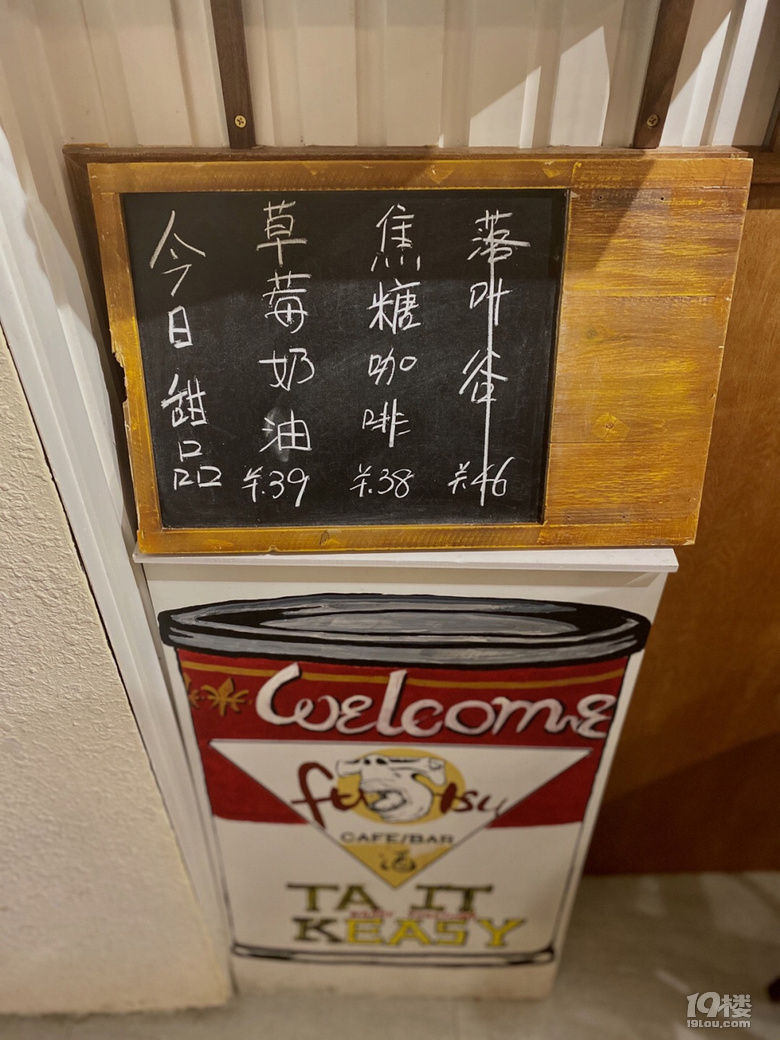 今日甜品
草莓奶油
¥.39
焦糖咖啡
¥.38
落叶谷
¥.46
Welcome
CAFE/BAR
酒
TA IT
KEASY
19楼
19lou.com